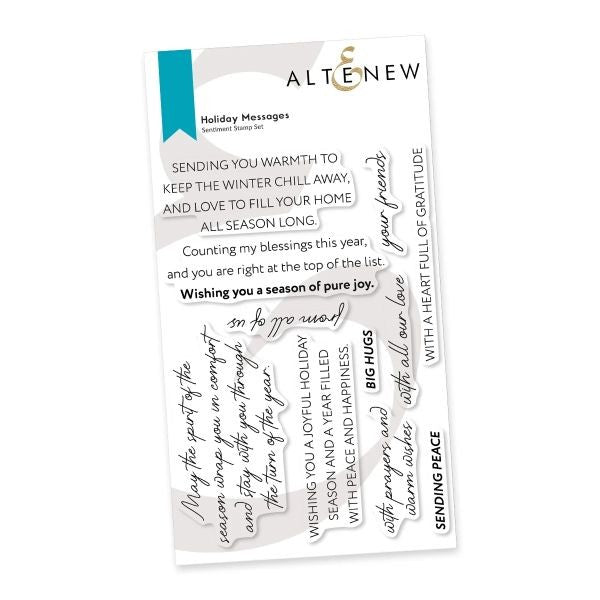 ALTENEW
Holiday Messages
Sentiment Stamp Set
SENDING YOU WARMTH TO
KEEP THE WINTER CHILL AWAY,
AND LOVE TO FILL YOUR HOME
ALL SEASON LONG.
Counting my blessings this year,
and you are right at the top of the list.
Wishing you a season of pure joy.
from all of us
your friends
WITH A HEART FULL OF GRATITUDE
with all our love
BIG HUGS
May the spirit of the
season wrap you in comfort
and stay with you through
the turn of the year.
WISHING YOU A JOYFUL HOLIDAY
SEASON AND A YEAR FILLED
WITH PEACE AND HAPPINESS.
with prayers and
warm wishes
SENDING PEACE